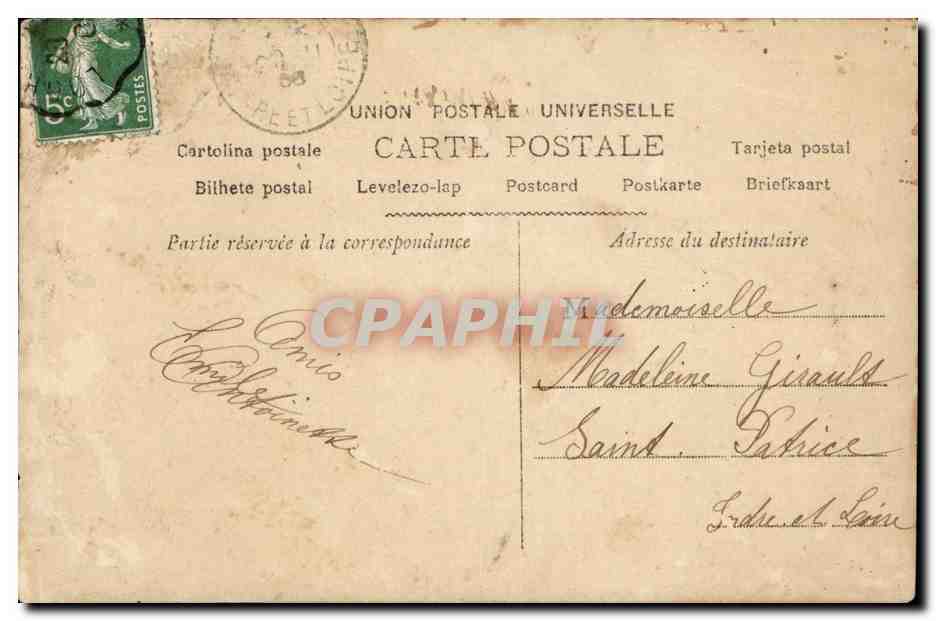 5c
POSTES
ET LOIRE
UNION POSTALE UNIVERSELLE
CARTE POSTALE
Cartolina postale
Tarjeta postal
Bilhete postal Levelezo-lap Postcard Postkarte Briefkaart
Partie réservée à la correspondance
Adresse du destinataire
CPAPHIL
Amis
Antoinette
Mademoiselle
Madeleine Girault
Saint. Patrice
Indre et Loire